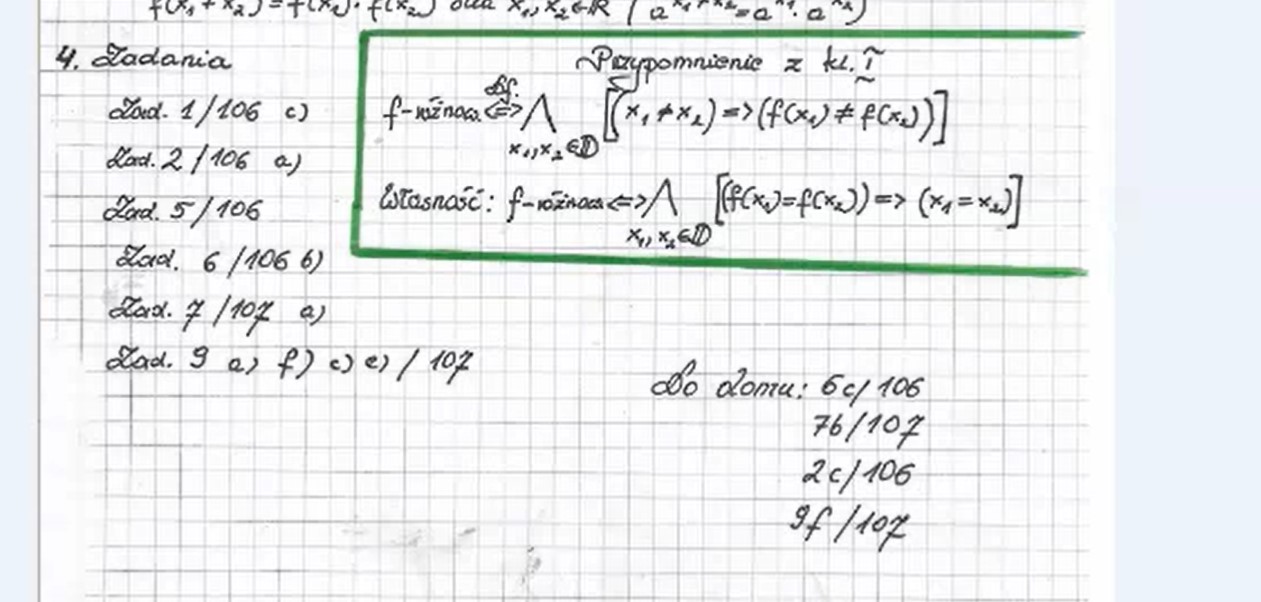 f(x₁+x₂)=f(x₁)·f(x₂) dla x₁,x₂∈ℝ (a^(x₁+x₂)=a^(x₁)·a^(x₂))
4. Zadania
Zad. 1/106 c)
Zad. 2/106 a)
Zad. 5/106
Zad. 6/106 b)
Zad. 7/107 a)
Zad. 9 a) f) c) e) / 107
Przypomnienie z kl. I
f-różnow. <=> ⋀ [(x₁≠x₂)=>(f(x₁)≠f(x₂))]
Df.
x₁,x₂∈D
Własność: f-różnow <=> ⋀ [(f(x₁)=f(x₂))=> (x₁=x₂)]
x₁,x₂∈D
Do domu: 6c/106
7b/107
2c/106
9f/107